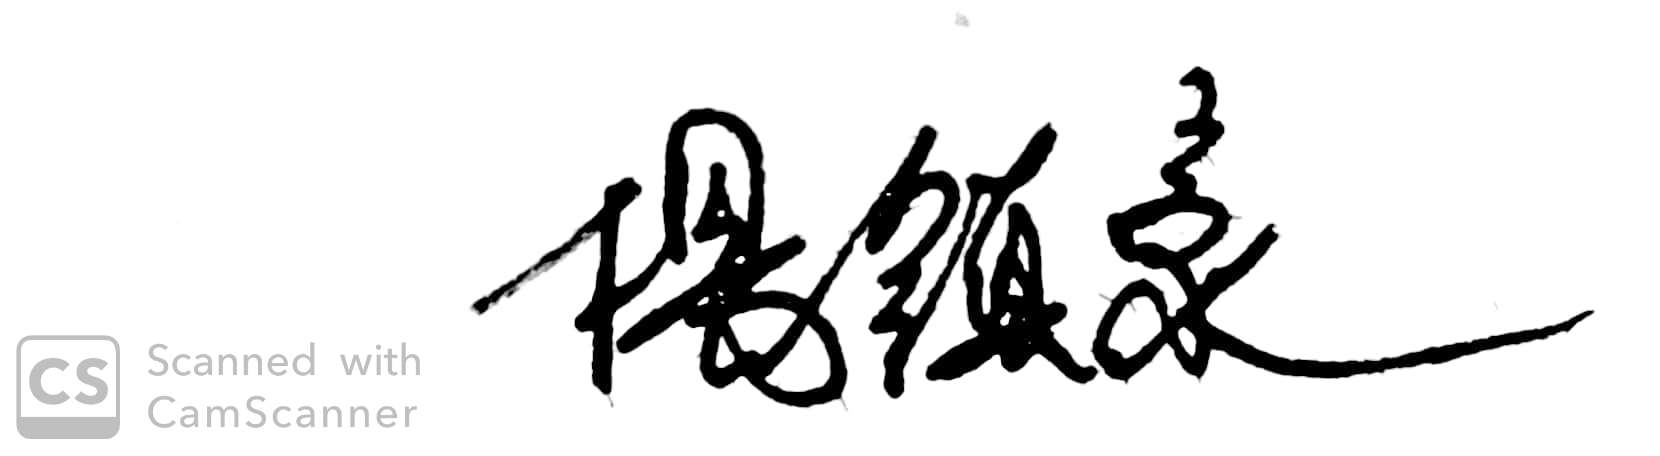 楊鎮豪
CS Scanned with
CamScanner